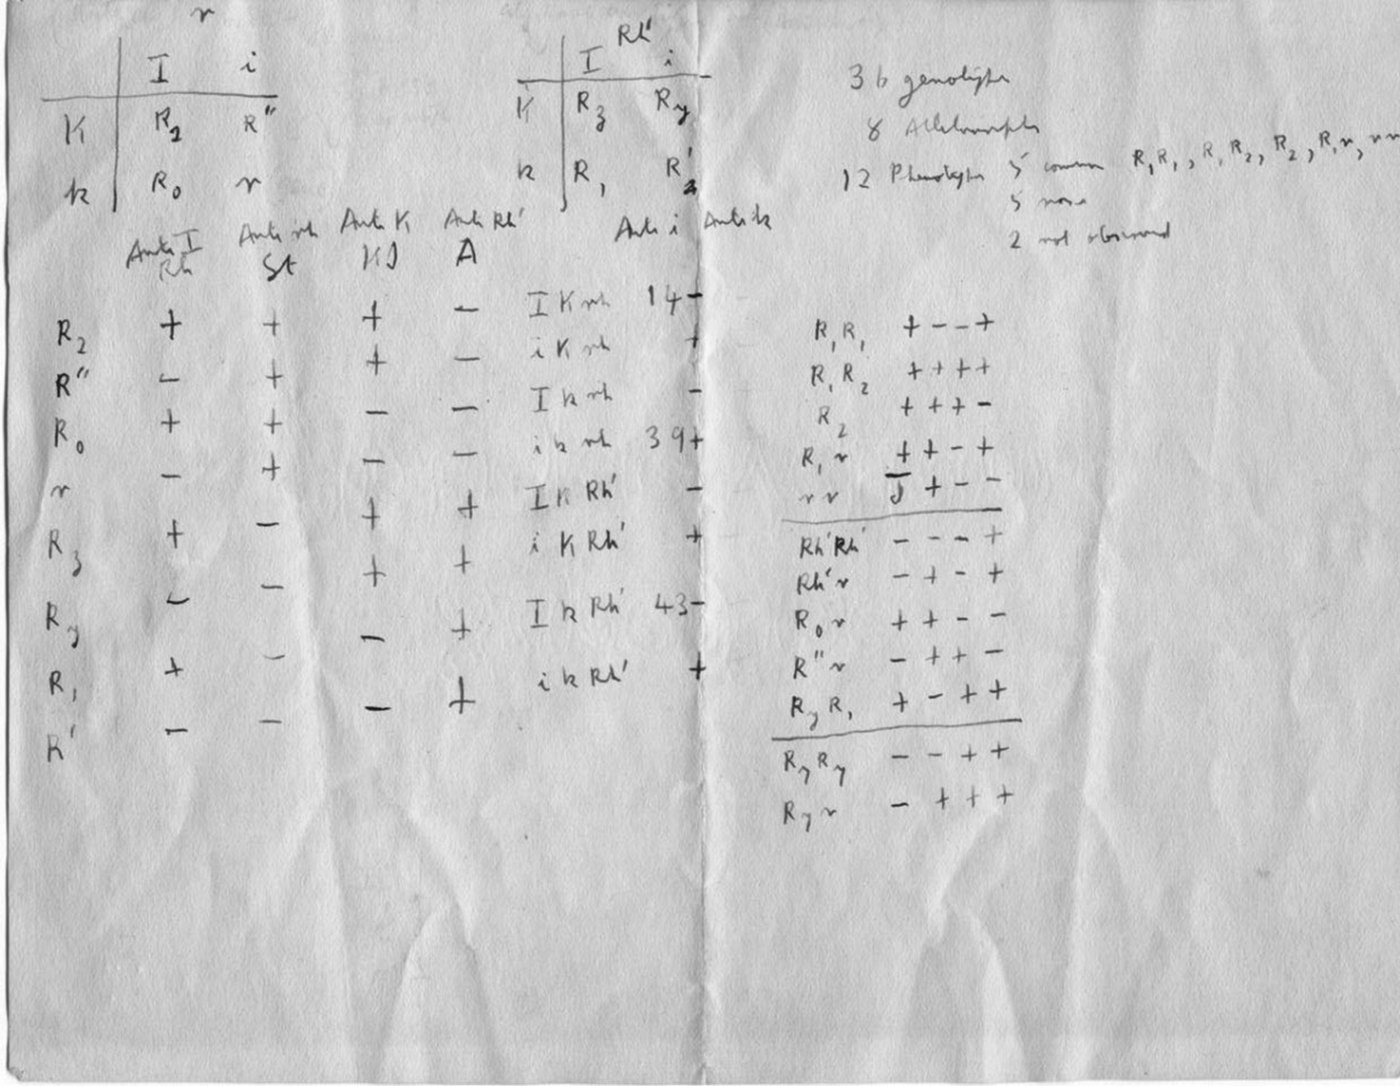 r
I i
K R2 R″
k R0 r
Rh′
I i
K Rz Ry
k R1 R′
36 genotypes
8 Allelomorphs
12 Phenotypes 5 common R1R1, R1R2, R2, R1r, rr
5 rare
2 not observed
Anti I Anti rh Anti K Anti Rh′ Anti i Anti k
Rh St A
R2 + + + − I K rh 14 −
R″ − + + − i K rh +
R0 + + − − I k rh −
r − + − − i k rh 39 +
Rz + − + + I K Rh′ −
Ry − − + + i K Rh′ +
R1 + − − + I k Rh′ 43 −
R′ − − − + i k Rh′ +
R1R1 + − − +
R1R2 + + + +
R2 + + + −
R1r + + − +
rr − + − −
Rh′Rh′ − − − +
Rh′r − + − +
R0r + + − −
R″r − + + −
RyR1 + − + +
RyRy − − + +
Ryr − + + +